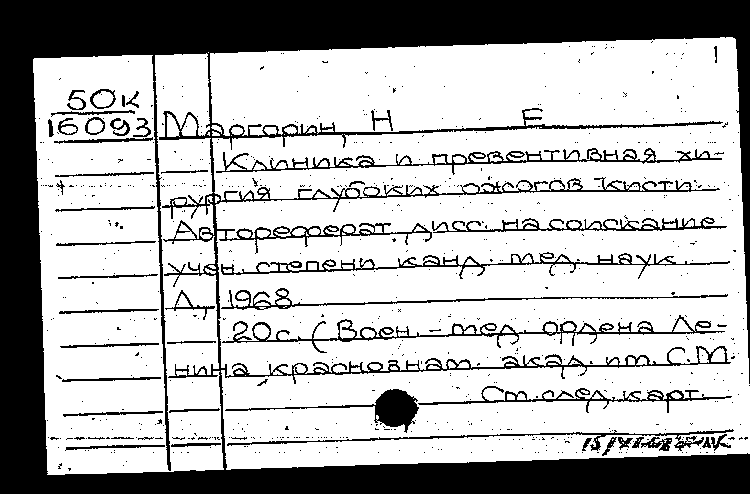 1
50к
16093 Маргорин, Н Е
Клиника и превентивная хи-
рургия глубоких ожогов кисти.
Автореферат дисс. на соискание
учен. степени канд. мед. наук.
Л., 1968.
20с. (Воен.-мед. ордена Ле-
нина краснознам. акад. им. С.М.
См. след. карт.